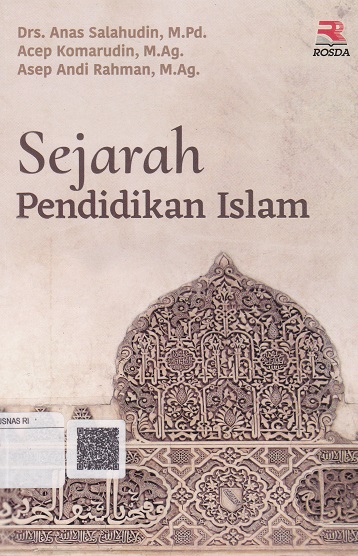 Drs. Anas Salahudin, M.Pd.
Acep Komarudin, M.Ag.
Asep Andi Rahman, M.Ag.
ROSDA
Sejarah
Pendidikan Islam
USNAS RI